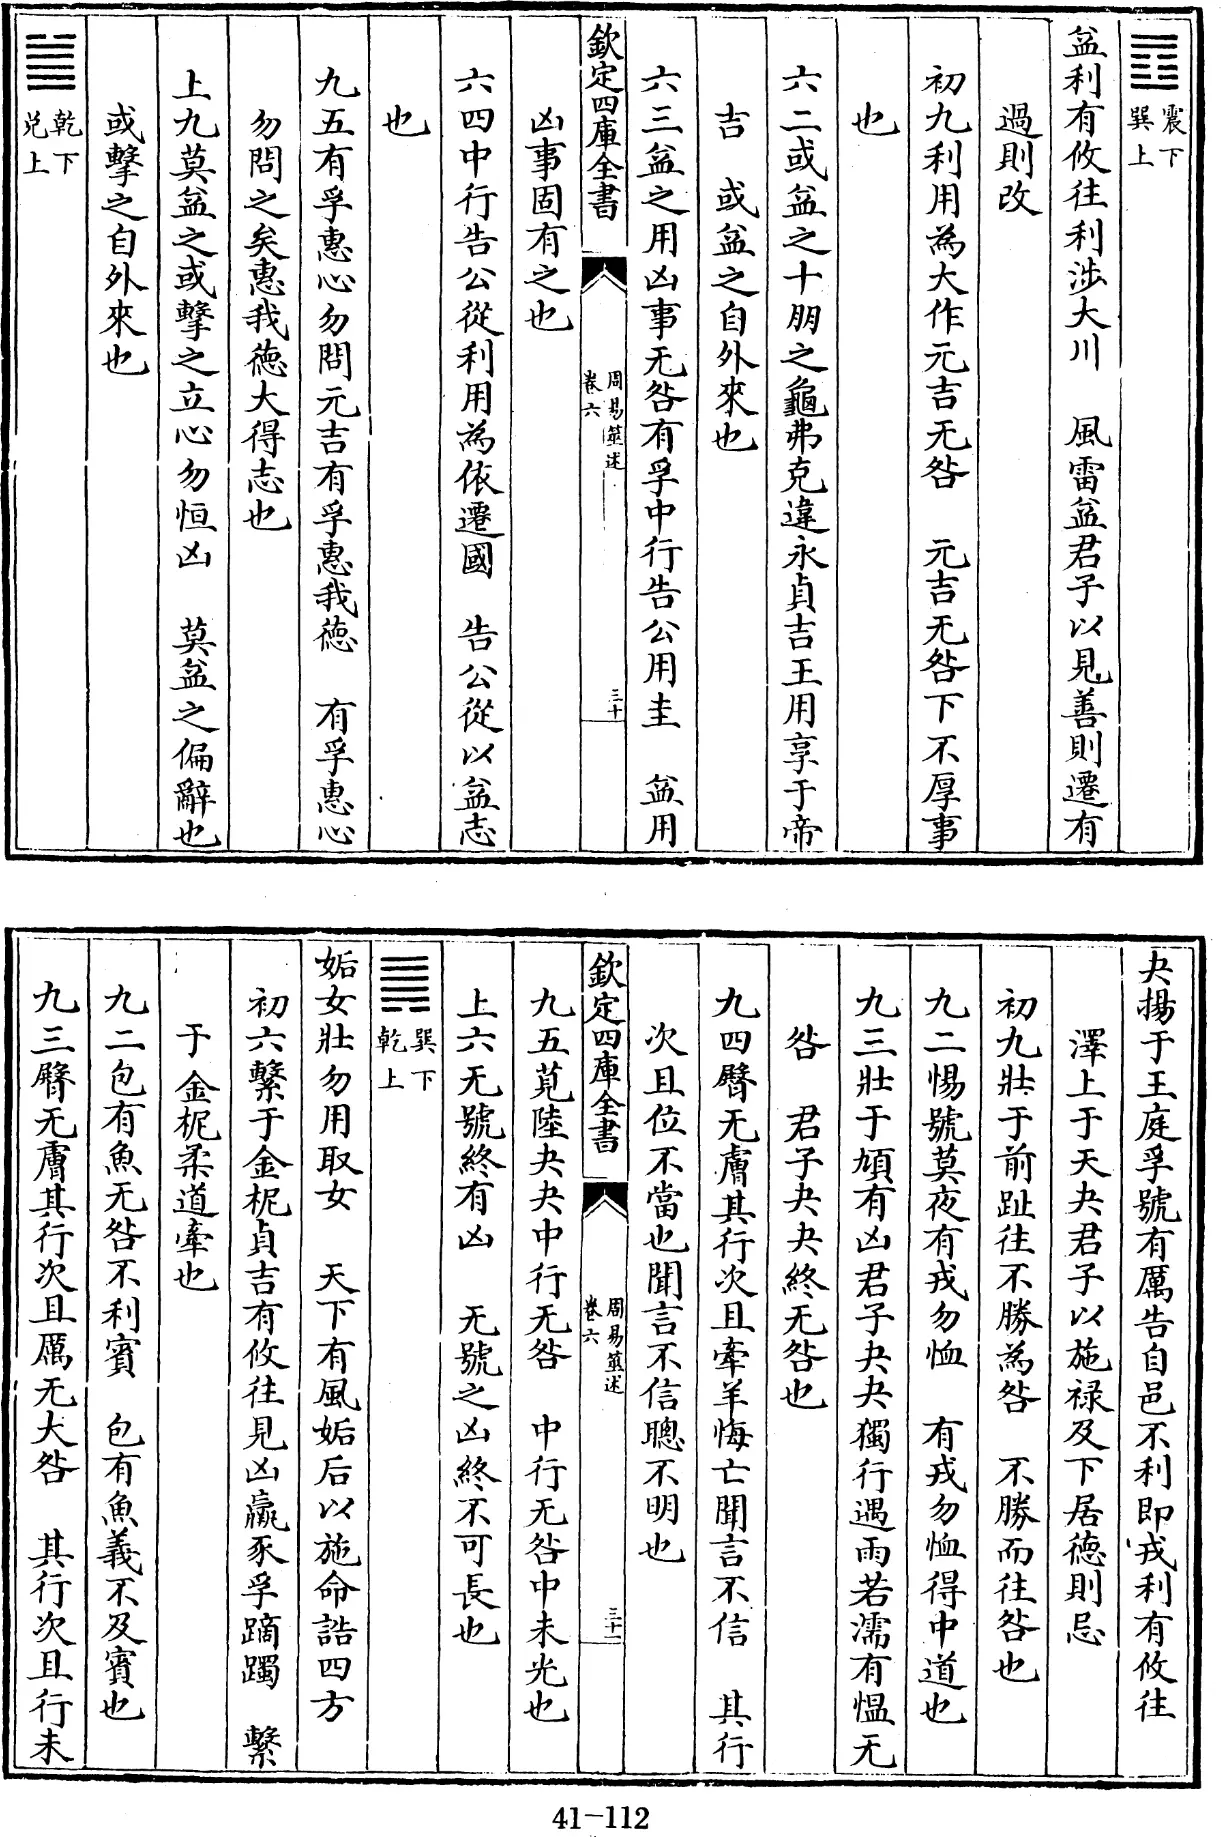 ䷩ 震下
巽上
益利有攸往利涉大川 風雷益君子以見善則遷有
過則改
初九利用為大作元吉无咎 元吉无咎下不厚事
也
六二或益之十朋之龜弗克違永貞吉王用享于帝
吉 或益之自外來也
六三益之用凶事无咎有孚中行告公用圭 益用
欽定四庫全書
周易筮述
卷六
三十
凶事固有之也
六四中行告公從利用為依遷國 告公從以益志
也
九五有孚惠心勿問元吉有孚惠我德 有孚惠心
勿問之矣惠我德大得志也
上九莫益之或擊之立心勿恒凶 莫益之偏辭也
或擊之自外來也
䷪ 乾下
兌上
夬揚于王庭孚號有厲告自邑不利即戎利有攸往
澤上于天夬君子以施祿及下居德則忌
初九壯于前趾往不勝為咎 不勝而往咎也
九二惕號莫夜有戎勿恤 有戎勿恤得中道也
九三壯于頄有凶君子夬夬獨行遇雨若濡有愠无
咎 君子夬夬終无咎也
九四臀无膚其行次且牽羊悔亡聞言不信 其行
次且位不當也聞言不信聰不明也
欽定四庫全書
周易筮述
卷六
三十一
九五莧陸夬夬中行无咎 中行无咎中未光也
上六无號終有凶 无號之凶終不可長也
䷫ 巽下
乾上
姤女壯勿用取女 天下有風姤后以施命誥四方
初六繫于金柅貞吉有攸往見凶羸豕孚蹢躅 繫
于金柅柔道牽也
九二包有魚无咎不利賓 包有魚義不及賓也
九三臀无膚其行次且厲无大咎 其行次且行未
41-112